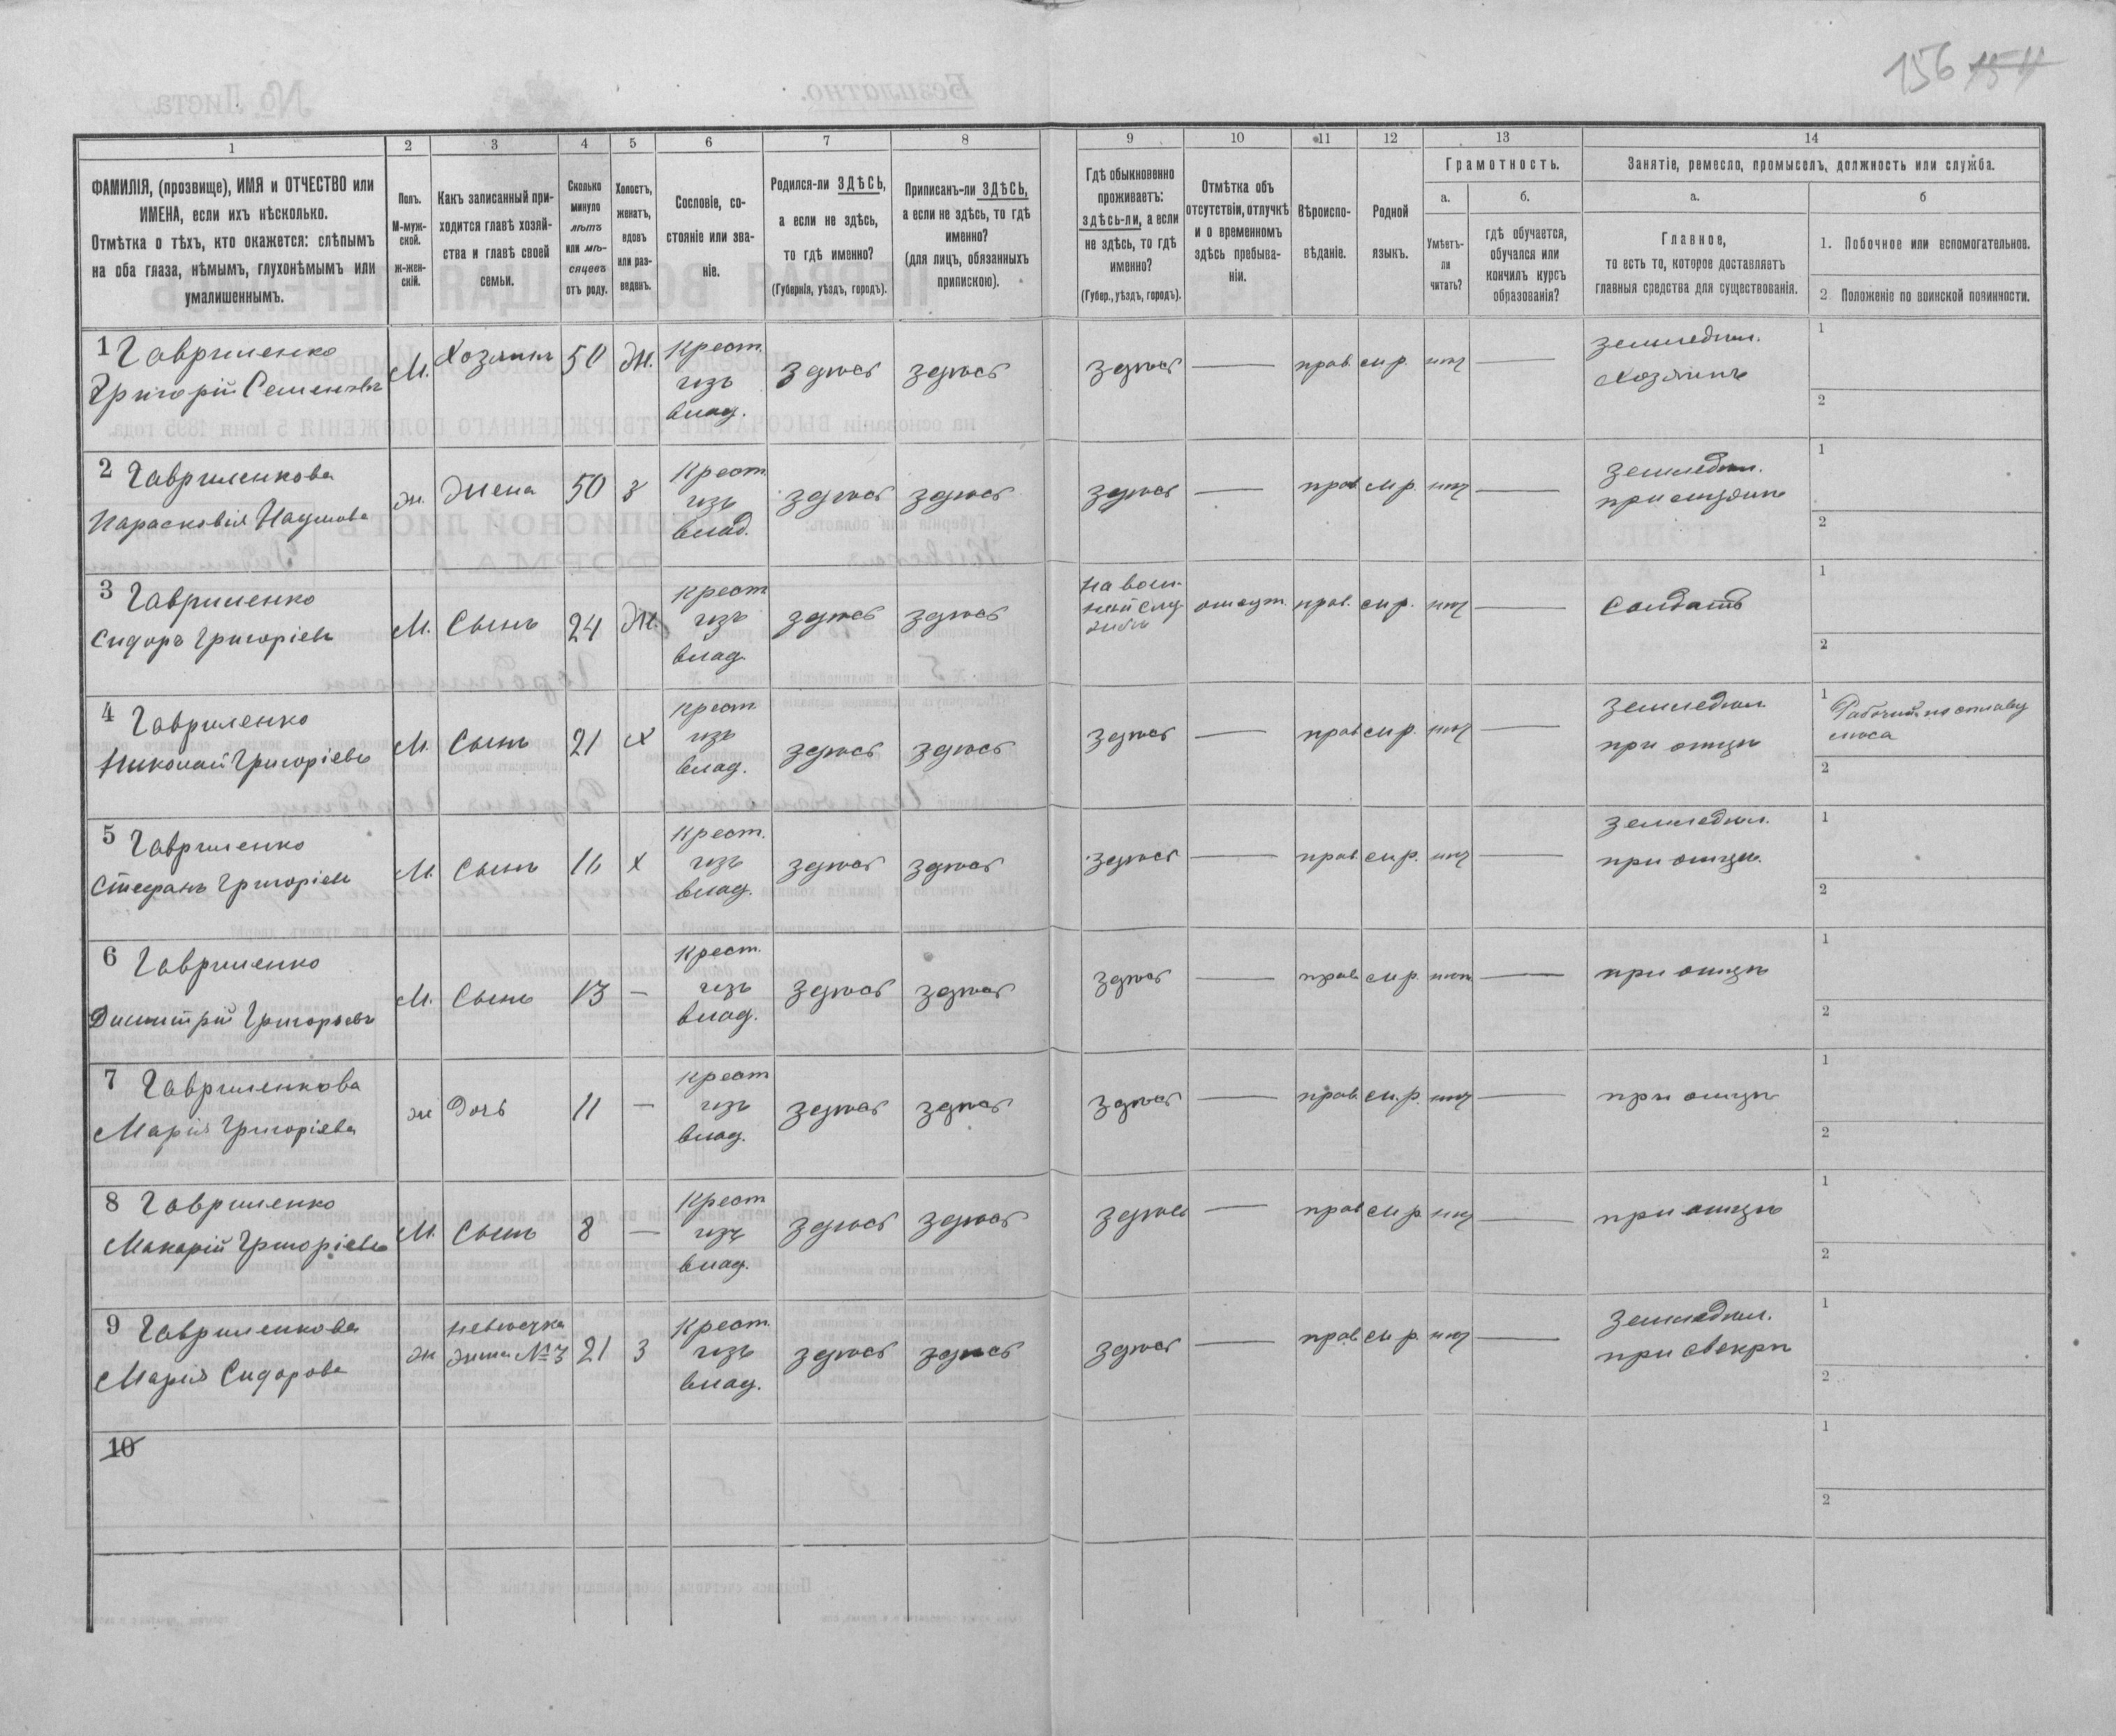 156 154
1 2 3 4 5 6 7 8 9 10 11 12 13 14
ФАМИЛІЯ, (прозвище), ИМЯ и ОТЧЕСТВО или ИМЕНА, если ихъ нѣсколько.
Отмѣтка о тѣхъ, кто окажется: слѣпымъ на оба глаза, нѣмымъ, глухонѣмымъ или умалишеннымъ.
Полъ.
М-муж-ской.
ж-жен-скій.
Какъ записанный при-ходится главѣ хозяй-ства и главѣ своей семьи.
Сколько минуло лѣтъ или мѣ-сяцевъ отъ роду.
Холостъ, женатъ, вдовъ или раз-веденъ.
Сословіе, со-стояніе или зва-ніе.
Родился-ли ЗДѢСЬ, а если не здѣсь, то гдѣ именно?
(Губернія, уѣздъ, городъ).
Приписанъ-ли ЗДѢСЬ, а если не здѣсь, то гдѣ именно?
(для лицъ, обязанныхъ припискою).
Гдѣ обыкновенно проживаетъ: здѣсь-ли, а если не здѣсь, то гдѣ именно?
(Губер., уѣздъ, городъ).
Отмѣтка объ отсутствіи, отлучкѣ и о временномъ здѣсь пребыва-ніи.
Вѣроиспо-вѣданіе.
Родной языкъ.
Грамотность.
а. б.
Умѣетъ-ли читать?
гдѣ обучается, обучался или кончилъ курсъ образованія?
Занятіе, ремесло, промыселъ, должность или служба.
а. б
Главное,
то есть то, которое доставляетъ главныя средства для существованія.
1. Побочное или вспомогательное.
2. Положеніе по воинской повинности.
1 Гавриленко Григорій Семеновъ М. Хозяинъ 50 Ж. Крест. изъ влад. здѣсь здѣсь здѣсь — прав. м.р. нѣт — земледѣл. хозяинъ 1 2
2 Гавриленкова Парасковія Наумова ж. Жена 50 з Крест. изъ влад. здѣсь здѣсь здѣсь — прав. м.р. нѣт — земледѣл. при мужѣ 1 2
3 Гавриленко Сидоръ Григоріевъ М. Сынъ 24 Ж. крест изъ влад. здѣсь здѣсь На воен-ной служ-бѣ отсут. прав. м.р. нѣт — Солдатъ 1 2
4 Гавриленко Николай Григоріевъ М. Сынъ 21 х крест изъ влад. здѣсь здѣсь здѣсь — прав м.р. нѣт — земледѣл при отцѣ 1 Рабочій по сплаву лѣса 2
5 Гавриленко Стефанъ Григоріевъ М. Сынъ 16 х крест. изъ влад. здѣсь здѣсь здѣсь — прав. м.р. нѣт — земледѣл. при отцѣ 1 2
6 Гавриленко Димитрій Григорьевъ М. Сынъ 13 — крест. изъ влад. здѣсь здѣсь здѣсь — прав. м.р. нѣт — при отцѣ 1 2
7 Гавриленкова Марія Григоріева ж Дочь 11 — крест изъ влад. здѣсь здѣсь здѣсь — прав. м.р. нѣт — при отцѣ 1 2
8 Гавриленко Макарій Григоріевъ М. Сынъ 8 — Крест изъ влад. здѣсь здѣсь здѣсь — прав м.р. нѣт — при отцѣ 1 2
9 Гавриленкова Марія Сидорова ж невѣстка жена №3 21 з Крест. изъ влад. здѣсь здѣсь здѣсь — прав м.р. нѣт — Земледѣл. при свекрѣ 1 2
10 1 2